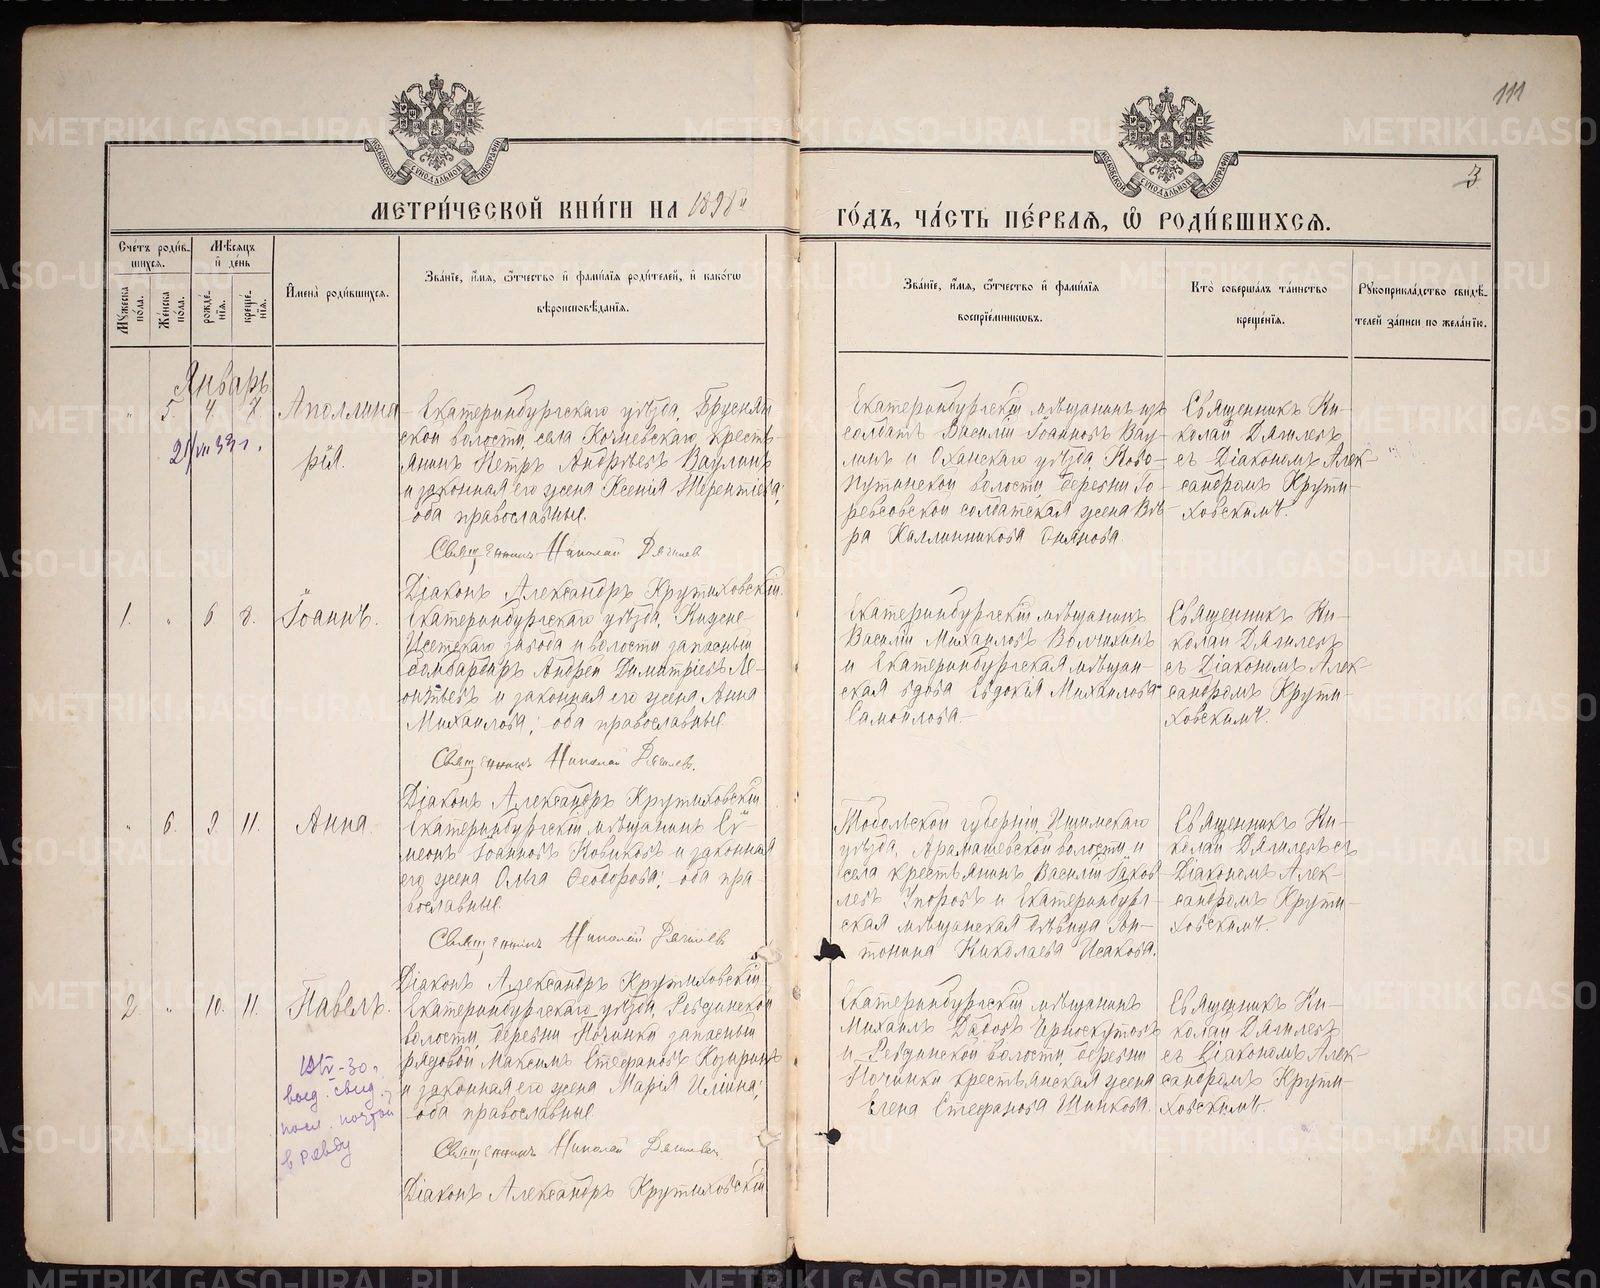 111
3
МЕТРИ́ЧЕСКОЙ КНИ́ГИ НА 1898й
ГО́ДЪ, ЧА́СТЬ ПЕ́РВАѦ, Ѽ РОДИ́ВШИХСѦ.
МОСКОВСКОЙ СѴНОДАЛЬНОЙ ТИПОГРАФІИ
МОСКОВСКОЙ СѴНОДАЛЬНОЙ ТИПОГРАФІИ
Сче́тъ роди́в-
шихсѧ.
Мꙋ́жеска по́ла.
Же́нска по́ла.
Мѣ́сѧцъ
и҆ де́нь
рожде́-нїѧ.
креще́-нїѧ.
И҆мена̀ роди́вшихсѧ.
Зва́нїе, и҆́мѧ, ѻ҆́тчество и҆ фами́лїѧ роди́телей, и҆ како́гѡ
вѣроисповѣ́данїѧ.
Зва́нїе, и҆́мѧ, ѻ҆́тчество и҆ фами́лїѧ
воспрїе́мникѡвъ.
Кто̀ соверша́лъ та́инство
креще́нїѧ.
Рꙋкоприкла́дство свидѣ́-
телей за́писи по жела́нїю.
Январь
" 5. 4. 7. Аполлина-
рія.
21/VII 33 г.
Екатеринбургскаго уѣзда, Бруснят-
ской волости, села Кочневскаго, кресть-
янинъ Петръ Андреевъ Ваулинъ
и законная его жена Ксенія Терентіева;
оба православные.
Священникъ Николай Дягилев
Діаконъ Александръ Крутиховскій.
Екатеринбургскій мѣщанинъ изъ
солдатъ Василій Іоанновъ Вау-
линъ и Оханскаго уѣзда, Ново-
Путинской волости, деревни Го-
ревсовской солдатская жена Вѣ-
ра Каллиникова
Священникъ Ни-
колай Дягилевъ
съ Діакономъ Алек-
сандромъ Крути-
ховскимъ.
1. " 6 8. Іоаннъ.
Екатеринбургскаго уѣзда, Нижне-
Исетскаго завода и волости запасный
бомбардиръ Андрей Димитріевъ Ле-
онтьевъ и законная его жена Анна
Михаилова; оба православные
Священникъ Николай Дягилев.
Діаконъ Александръ Крутиховскій
Екатеринбургскій мѣщанинъ
Василій Михаиловъ Волчихинъ
и Екатеринбургская мѣщан-
ская вдова Евдокія Михаилова
Самойлова.
Священникъ Ни-
колай Дягилевъ
съ Діакономъ Алек-
сандромъ Крути-
ховскимъ.
" 6. 9. 11. Анна.
Екатеринбургскій мѣщанинъ Сѵ-
меонъ Іоанновъ Новиковъ и законная
его жена Ольга Ѳеодорова; оба пра-
вославные.
Священникъ Николай Дягилев
Діаконъ Александръ Крутиховскій
Тобольской губерніи, Ишимскаго
уѣзда, Арамашевской волости и
села крестьянинъ Василій Іаков-
левъ Упоровъ и Екатеринбург-
ская мѣщанская дѣвица Ан-
тонина Николаева Исакова.
Священникъ Ни-
колай Дягилевъ съ
Діакономъ Алек-
сандромъ Крути-
ховскимъ.
2. " 10. 11. Павелъ.
Екатеринбургскаго уѣзда, Ревдинской
волости, деревни Починки запасный
рядовой Максимъ Стефановъ Козыринъ
и законная его жена Марія Илiина;
оба православные
Священникъ Николай Дягилевъ
Діаконъ Александръ Крутиховскій
Екатеринбургскій мѣщанинъ
Михаилъ Давидовъ Черноскутовъ
и Ревдинской волости, деревни
Починки крестьянская жена
Елена Стефанова Шипкова.
Священникъ Ни-
колай Дягилевъ
съ Діакономъ Алек-
сандромъ Крути-
ховскимъ.
IV-30 г.
выд. свид.
посл. почтой
в Ревду
METRIKI.GASO-URAL.RU